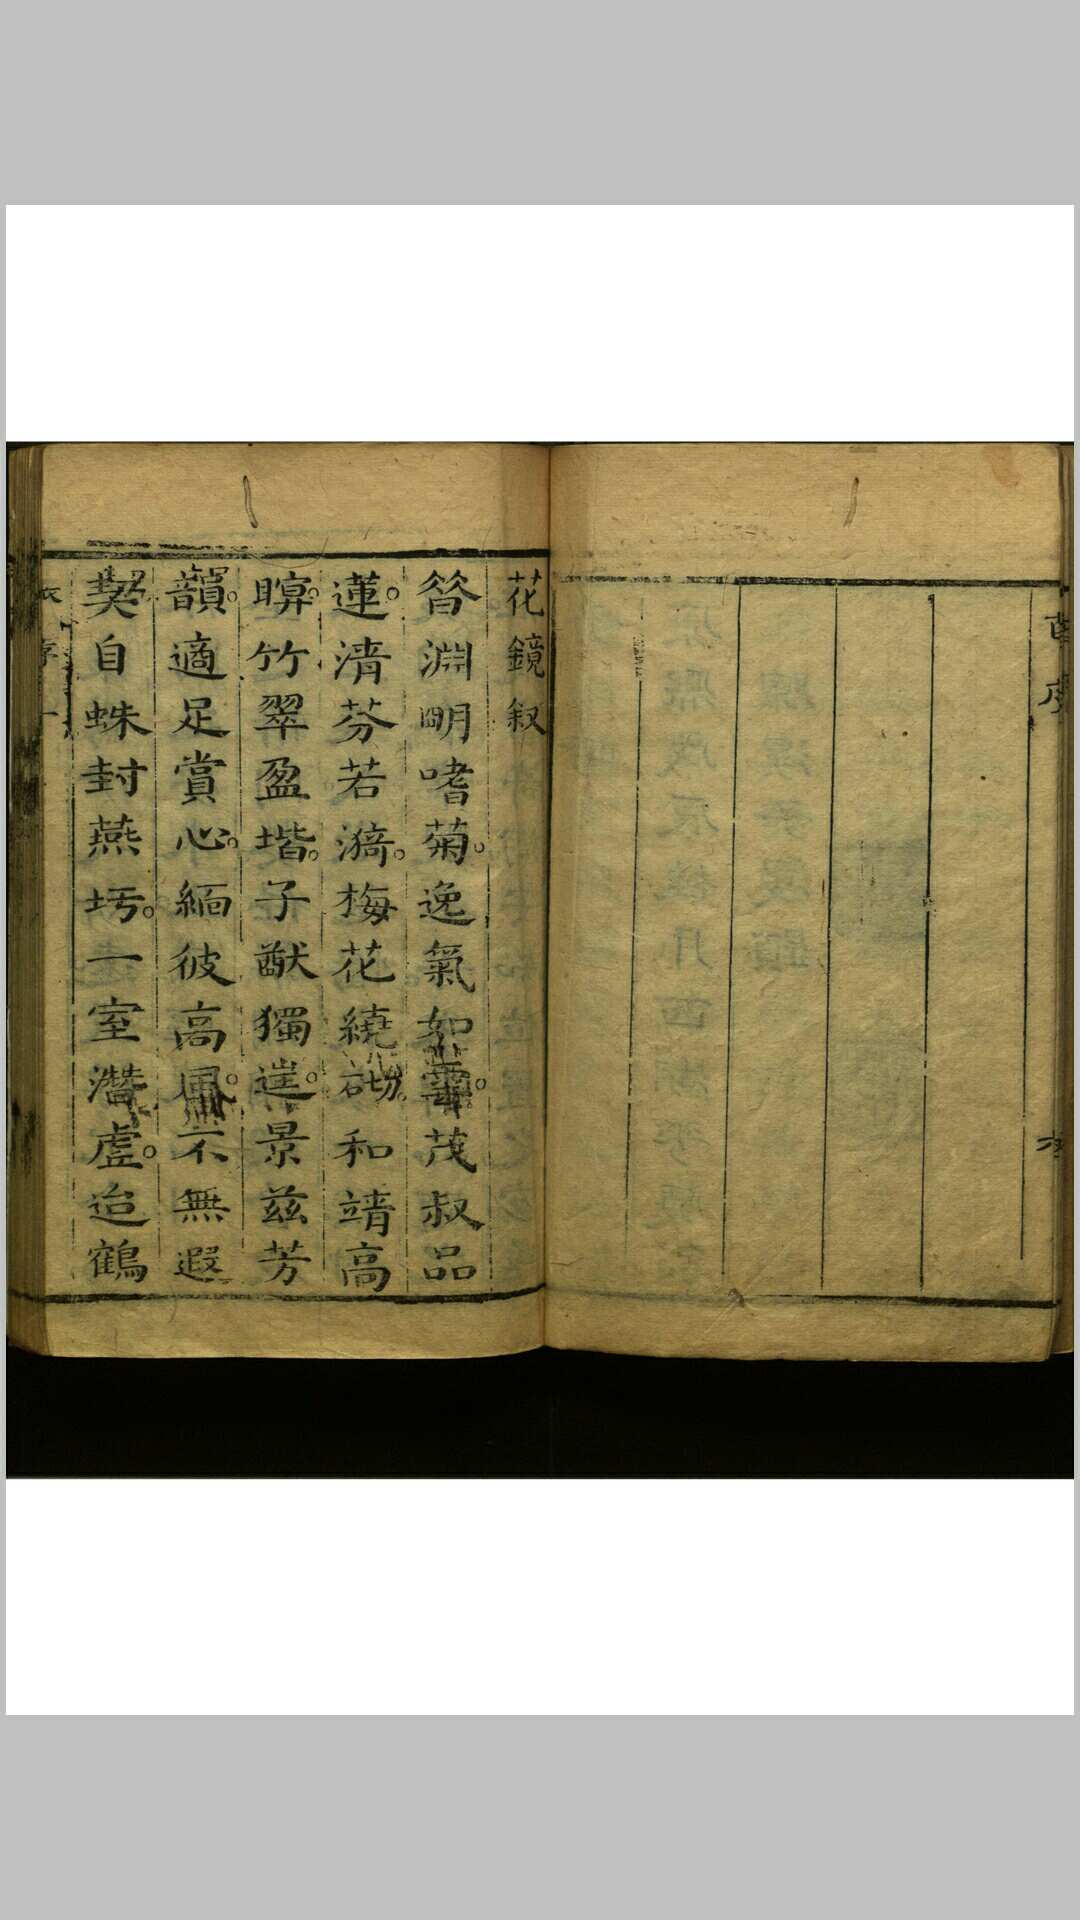 花鏡叙
昔淵明嗜菊。逸氣如。茂叔品
蓮。清芬若漪。梅花繞砌。和靖高
竹翠盈堦。子猷獨。景茲芳
韻。適足賞心。緬彼高風。不無遐
契。自蛛封燕圬。一室潛虛。迨鶴
序一